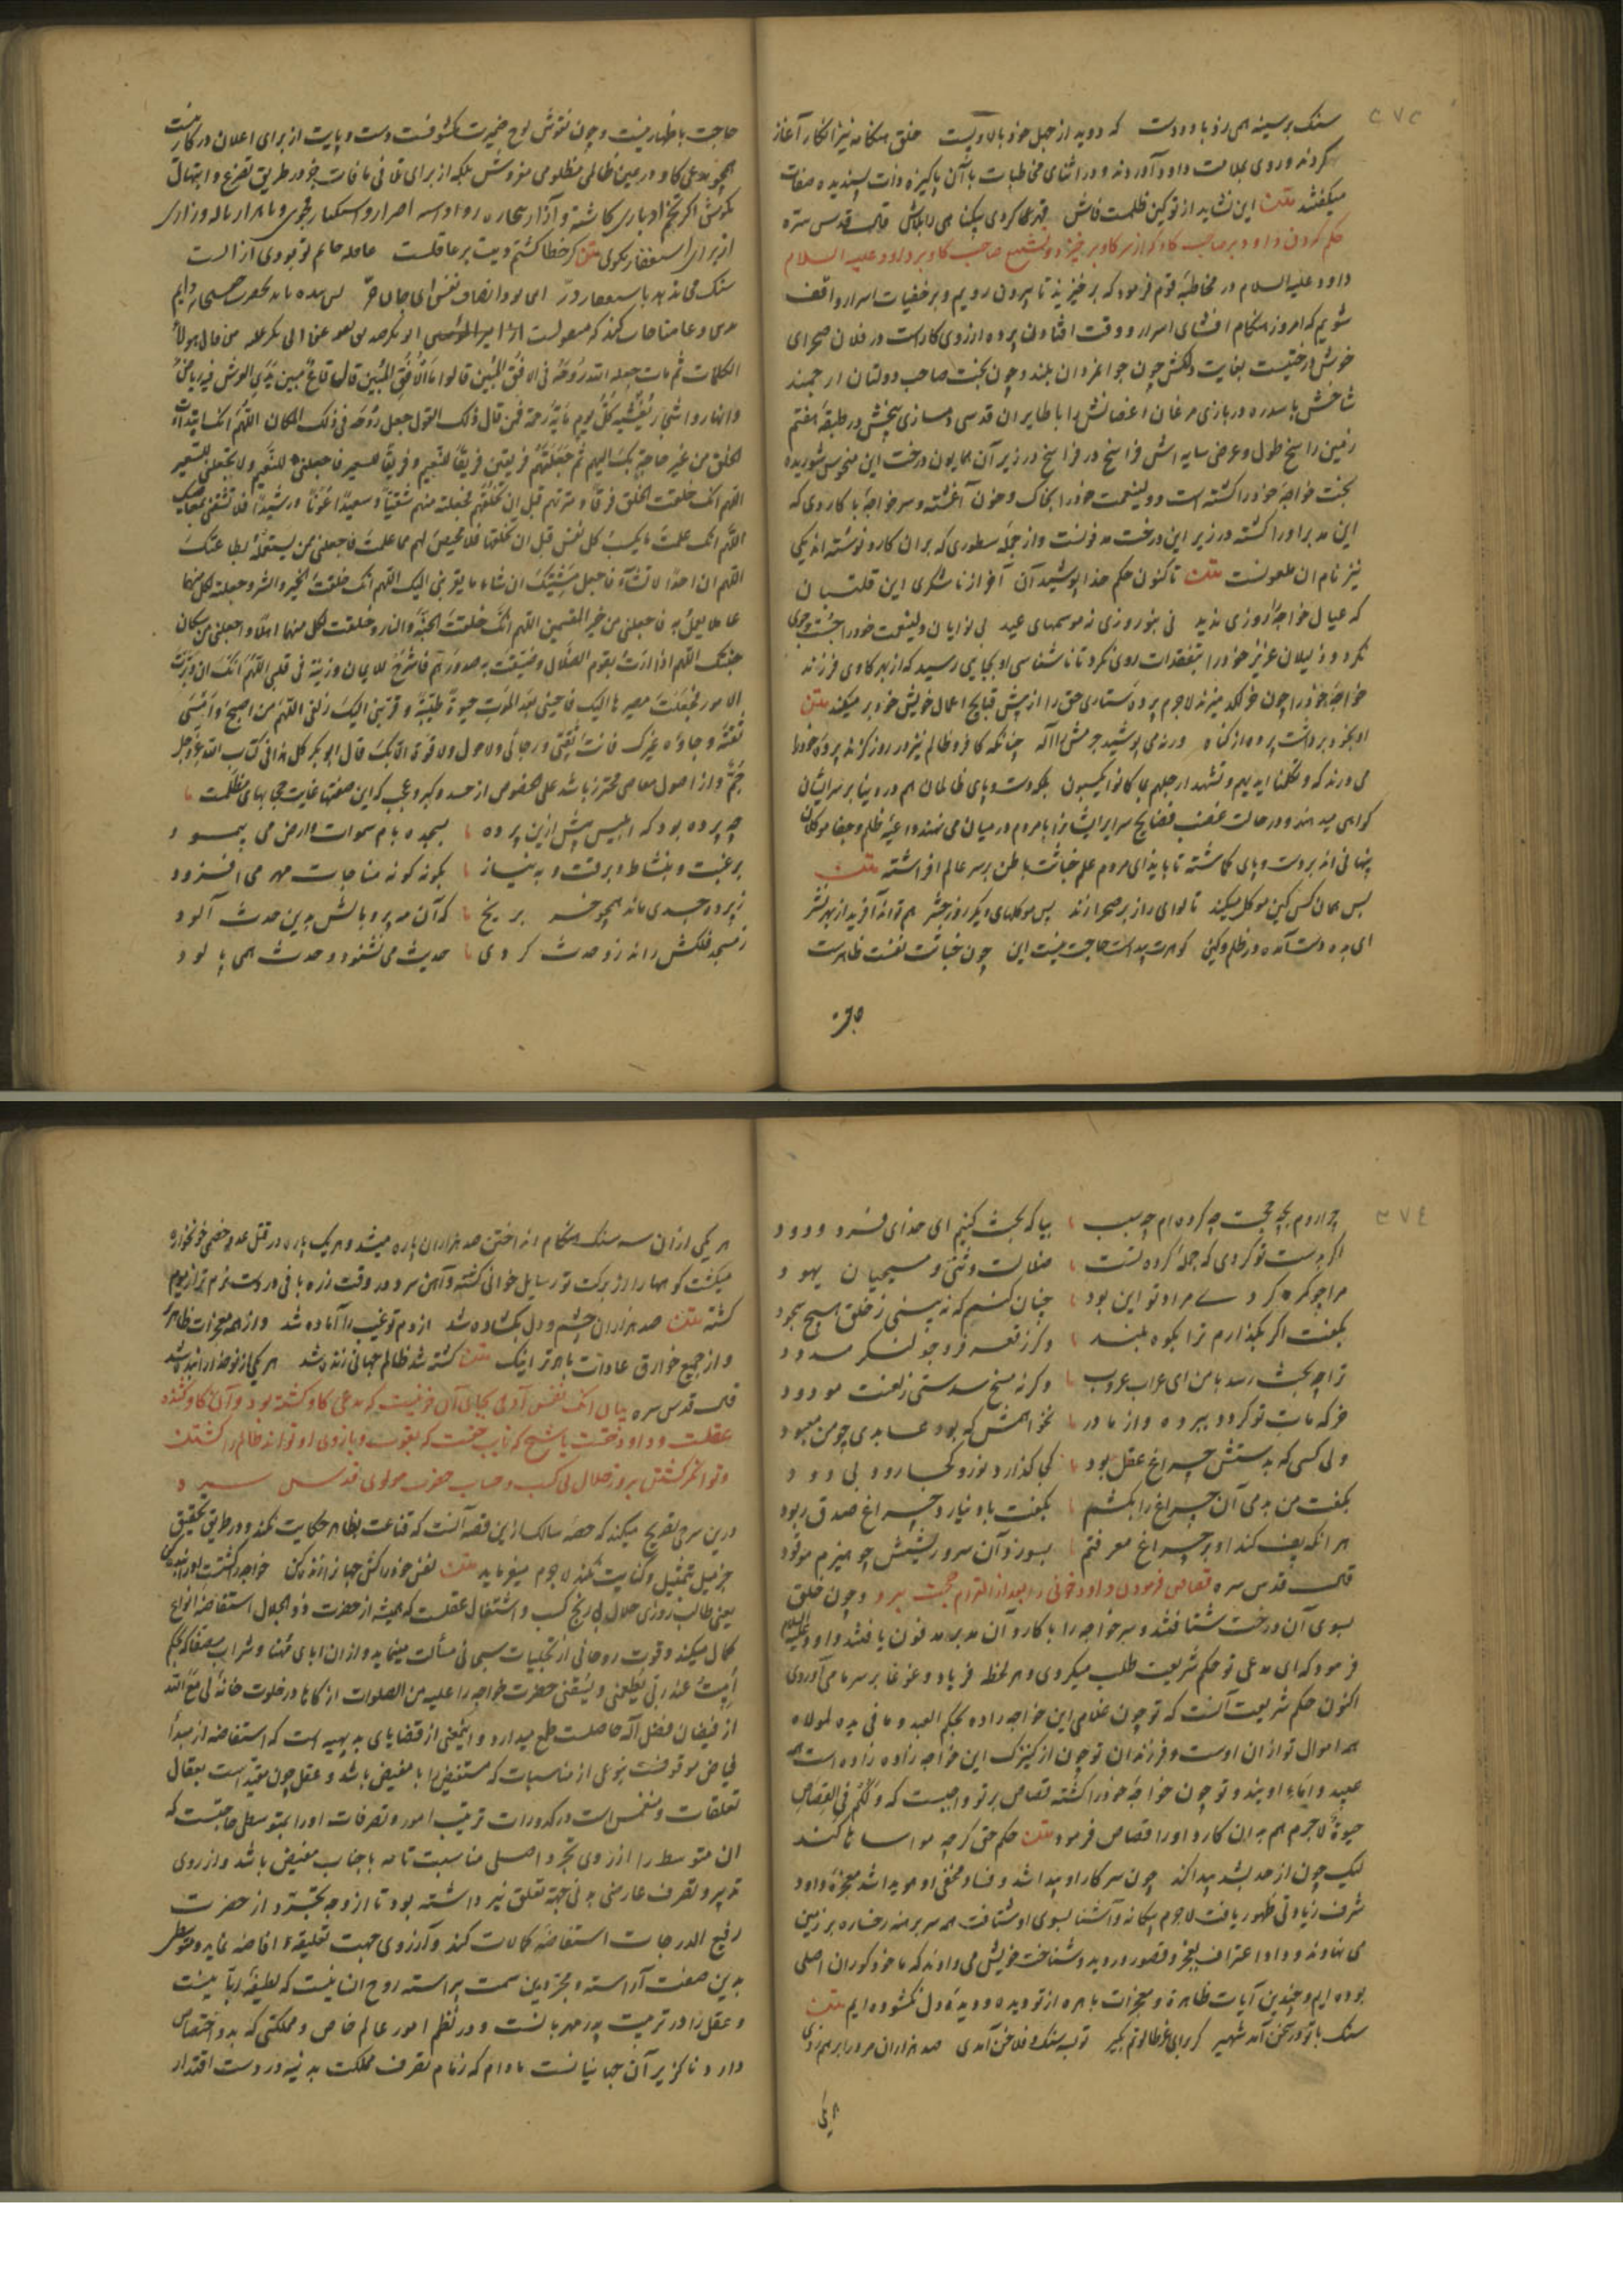 ٣٧٣
سنک بر سینه همی زد با دو دست که دوید از جهل خود بالا و پست خلق هنکامه نیز انکار آغاز
کردند و روی بملامت داود آوردند و در اثنای مخاطبات با آن پاکیزه ذات پسندیده صفات
میکفتند متن این نشاید از تو کین ظلمست فاش قهر کردی بیکناهی را بلاش قال قدس سره
حکم کردن داود بر صاحب کاو که از سر کاو برخیز و تشنیع صاحب کاو بر داود علیه السلام
داود علیه السلام در مخاطبهٔ قوم فرمود که برخیزید تا بیرون رویم و بر خفیات اسرار واقف
شویم که امروز هنکام افشای اسرار و وقت افتادن پرده از روی کارست در فلان صحرای
خوش درختیست بغایت دلکش چون جوانمردان بلند و چون بخت صاحب دولتان ارجمند
شاخش با سدره در بازی مرغان اغصانش را با طایران قدسی دمسازی بیخش در طبقهٔ هفتم
زمین راسخ طول و عرض سایه اش فراسخ در فراسخ در زیر آن همایون درخت این منحوس شوریده
بخت خواجهٔ خود را کشته است و ولینعمت خود را بخاک و خون آغشته و سر خواجه را با کاردی که
این مدبر او را کشته در زیر این درخت مدفونست و از جمله سطوری که بر آن کارد نوشته اند یکی
نیز نام آن ملعونست متن تاکنون حکم خدا پوشید آن آخر از ناشکری این قلتبان
که عیال خواجه را روزی ندید نی بنوروزی نه موسمهای عید بی نوایان ولینعمت خود را جست و جوی
نکرد و ذلیلان عزیز خود را بتفقدات روی نکرد تا ناشناسی او بجایی رسید که از بهر کاوی فرزند
خواجهٔ خود را چون خر لکد میزند لاجرم پردهٔ ستاری حق را از پیش قبایح اعمال خویش خود بر میکند متن
او بخود برداشت پرده از کناه ورنه می پوشید جرمش را اله چنانکه کافر و ظالم نیز در روز کزند پرده خود را
می درند که و تکلمنا ایدیهم و تشهد ارجلهم بما کانوا یکسبون بلکه دست و پای ظالمان هم در دنیا بر سر ایشان
کواهی میدهند و در حالت غضب فضایح سرایر ایشان را با مردم در میان می نهند داعیهٔ ظلم و جفا موکلان
پنهانی اند بر دست و پای کماشته تا بایذای مردم علم خباثت باطن بر سر عالم افراشته متن
پس همان کس کین موکل میکند تا لوای راز بر صحرا زند پس موکلهای دیکر روز حشر هم تواند آفرید از بهر نشر
ای بده دست آمده در ظلم و کین کوهرت پیداست حاجت نیست این چون خباثت نفست ظاهرست
حاجت باظهار نیست و چون نقوش لوح ضمیرت مکشوفست دست و پایت از برای اعلان در کارست
همچو مدعی کاو در عین ظالمی مظلومی مفروش بلکه از برای تلافی مافات خود در طریق تضرع و ابتهال
بکوش اکر تخم ادباری کاشته و آزار بیچاره روا داشته اصرار و استکبار مجوی و با هزار ناله و زاری
از برای استغفار بکوی متن کر خطا کشتم دیت بر عاقلست عاقله جانم تو بودی از الست
سنک می ندهد باستغفار در این بود انصاف نفس ای جان حر
الکلمات ثم مات جعله الله روحه فی الافق المبین قالوا ما الافق المبین قال قاع بین یدی العرش فیه ریاض
وانهار واشجار یغشیه کل یوم مایة رحمة فمن قال ذلک القول جعل روحه فی ذلک المکان اللهم انک ابتدأت
الخلق من غیر حاجة بک الیهم ثم جعلتهم فریقین فریقا للنعیم وفریقا للسعیر فاجعلنی للنعیم ولا تجعلنی للسعیر
اللهم انک خلقت الخلق فرقا ومیزتهم قبل ان تخلقهم فجعلت منهم شقیا وسعیدا وغویا ورشیدا فلا تشقنی بمعاصیک
اللهم انک علمت ما یکسب کل نفس قبل ان تخلقها فلا محیص لهم مما علمت فاجعلنی ممن یستعمله بطاعتک
اللهم ان احدا لا یشاء فاجعل مشیتک ان شاء ما یقربنی الیک اللهم انک خلقت الخیر والشر وجعلت لکل منهما
عاملا یعمل به فاجعلنی من خیر القسمین اللهم انک خلقت الجنة والنار وخلقت لکل منهما اهلا واجعلنی من سکان
جنتک اللهم اذا اردت بقوم الضلال وضیقت به صدورهم فاشرح للایمان وزینه فی قلبی اللهم انک ان دبرت
الامور فجعلت مصیرها الیک فاحینی بعد الموت حیوة طیبة وقربنی الیک زلفی اللهم من اصبح وامسی
ثقته ورجاؤه غیرک فانت ثقتی ورجائی ولا حول ولا قوة الا بک قال ابوبکر کل هذا فی کتاب الله عز وجل
و از اصول معاصی محترز باشد علی الخصوص از حسد و کبر و عجب که این صفتها غایت حجابهای مظلمت
چه پرده بود که ابلیس پیش ازین پرده بسجده بام سموات و ارض می پیمود
برغبت و بنشاط و برقت و به نیاز بکونه کونه مناجات مهر می افزود
ز پرده حسدی ماند همچو خر بر یخ که آن همه پر و بالش بدین حدث آلود
ز مسجد فلکش راند رو حدث کردی حدیث می نشنود و حدث همی پالود
٣٧٤
چرا روم بچه حجت چه کرده ام چه سبب بیا که بحث کنیم ای خدای فرد ودود
اکر بدست تو کردی که جمله کردهٔ تست ضلالت وثنی و مسیحیان یهود
مرا چو کمره کردی مراد تو این بود چنان کنم که نبینی ز خلق هیچ سجود
بکفت اکر بکذارم ترا بکوه بلند
ترا چه بحث رسد با من ای غراب غروب وکرنه مسخ شدستی ز لعنت مودود
خری که مات تو کردد ببرد واز مادر نخواهمش که بود عابدی چو من معبود
ولی کسی که بدستش چراغ عقل بود کجا کذارد نور و کجا رود بی دود
بکفت من بدمی آن چراغ را بکشم بکفت باد نیارد چراغ صدق ربود
هر آنکه پف کند او بر چراغ معرفتم بسوزد آن سر و ریشش چو هیزم موقود
قال قدس سره قصاص فرمودن داود خونی را بعد از الزام حجت برو و چون خلق
بسوی آن درخت شتافتند و سر خواجه را با کارد آن مدبر مدفون یافتند داود علیه السلام
فرمود که ای مدعی تو حکم شریعت طلب میکردی و هر لحظه فریاد و غوغا بر سر ما می آوردی
اکنون حکم شریعت آنست که تو چون غلامی این خواجه زاده بحکم العبد و ما فی یده لمولاه
همه اموال تو از آن اوست و فرزندان تو چون از کنیزک این خواجه زاده زاده است همه
عبید و اماء اویند و تو چون خواجهٔ خود را کشته قصاص بر تو واجبست که ولکم فی القصاص
حیوة لاجرم هم بدان کارد او را قصاص فرمود متن حلم حق کرچه مواساها کند
لیک چون از حد بشد پیدا کند چون سر کار او پیدا شد و فساد مخفی او هویدا شد معجزهٔ داود
شرف زیادتی ظهور یافت لاجرم بیکانه و آشنا بسوی او شتافت همه سر برهنه رخساره بر زمین
می نهادند و داد اعتراف بعجز و قصور در دید و شناخت خویش می دادند که ما خود کوران اصلی
بوده ایم و چندین آیات ظاهره و معجزات باهره از تو دیده و دیدهٔ دل نکشوده ایم متن
سنک با تو در سخن آمد شهیر کز برای غزو طالوتم بکیر تو بسه سنک و فلاخن آمدی صد هزاران مرد را بر هم زدی
هر یکی از آن سه سنک هنکام انداختن صد هزاران پاره میشد و هر یک پاره در قتل عدو خصمی خونخواره
میکشت کوهها را از برکت تو رسایل خوانی کشته و آهن سرد در وقت زره بافی در دست نرم تر از موم
کشته متن صد هزاران چشم و دل بکشاده شد از دم تو غیب را آماده شد و از همه معجزات ظاهرتر
و از جمیع خوارق عادات باهرتر اینک متن کشته شد ظالم جهانی زنده شد هر یکی از نو خدا را بنده شد
قال قدس سره بیان آنک نفس آدمی بجای آن خونیست که مدعی کاو کشته بود و آن کاو کشنده
عقلست و داود حقست یا شیخ که نایب حقست که بقوت و یاری او تواند ظالم را کشتن
و توانکر کشتن بروزی حلال بی کسب و حساب حضرت مولوی قدس سره
درین سرخی تصریح میکند که حصهٔ سالک ازین قصه آنست که قناعت بظاهر حکایت نکند و در طریق تحقیق
جز میل تمثیل و کنایت نکند لاجرم میفرماید متن نفس خود را کش جهانی زنده کن خواجه را کشتست او را بنده کن
یعنی طالب روزی حلال بی رنج کسب و اشتغال عقلست که همیشه از حضرت ذو الجلال استفاضهٔ انواع
کمال میکند و قوت روحانی از تجلیات سبحانی مسألت مینماید و از آن ابای مهنا و شراب مصفا که بحکم
ابیت عند ربی یطعمنی ویسقینی حضرت خواجه را علیه من الصلوات ازکاها در خلوت خانهٔ لی مع الله
از فیضان فضل اله حاصلست طمع میدارد و اینمعنی از قضایای بدیهیه است که استفاضه از مبدأ
فیاض موقوفست بنوعی از مناسبات که مستفیض را با مفیض باشد و عقل چون مقید است بعقال
تعلقات و منغمس است در کدورات ترتیب امور و تصرفات او را بمتوسطی حاجتست که
آن متوسط را از روی تجرد اصلی مناسبت تامه با جناب مفیض باشد و از روی
تدبیر و تصرف عارضی بدنی جهة تعلق نیز داشته بود تا از وجه تجرد از حضرت
رفیع الدرجات استفاضهٔ کمالات کند و از روی جهت تعلیقه افاضه نماید و متوسطی
بدین صفت آراسته و بچنین سمت پیراسته روح انسانیست که لطیفهٔ ربانیست
و عقل را در تربیت پدر مهربانست و در نظم امور عالم خاص و مملکتی که بدو اختصاص
دارد ناکزیر آن جهانیانست مادام که زمام تصرف مملکت بدنیه در دست اقتدار